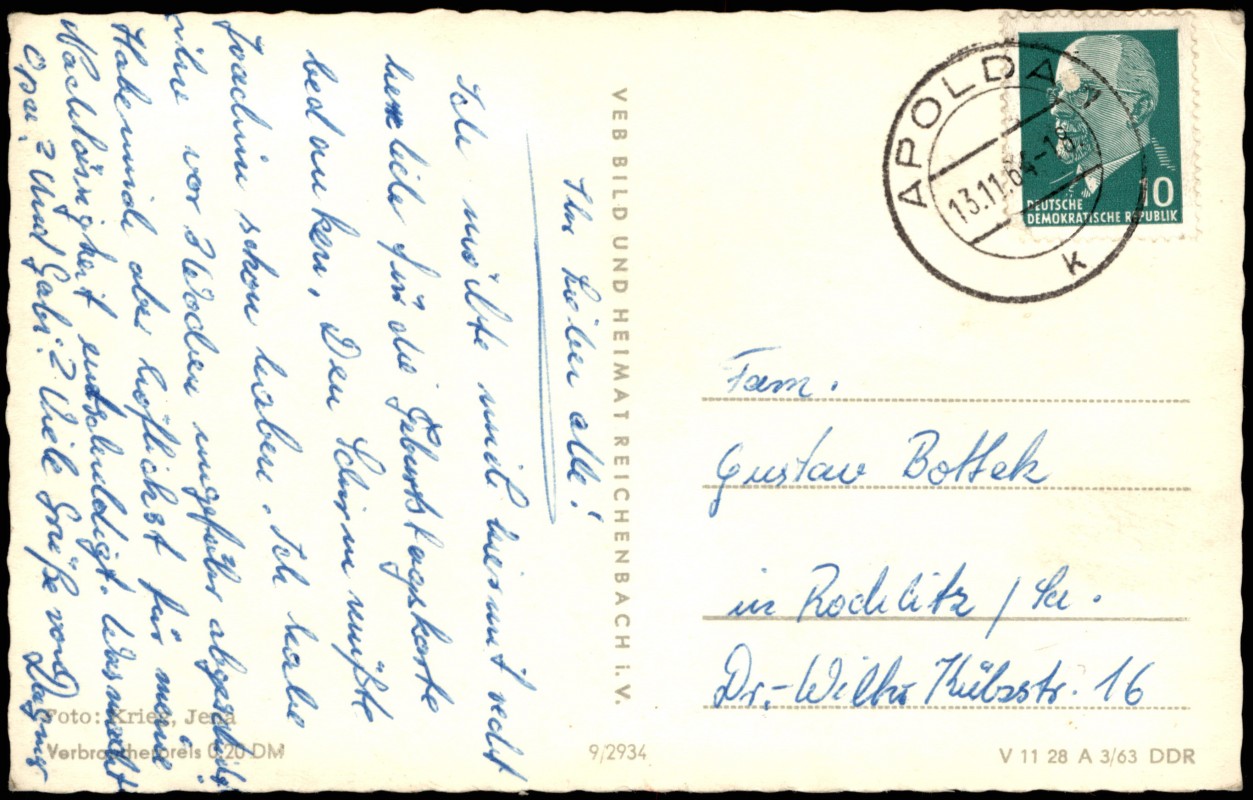 Ihr Lieben alle!
Ich möchte mich hiermit recht
herzlich für die Geburtstagskarte
bedanken. Den Schirm müßte
Joachim schon haben. Ich habe
ihn vor 3 Wochen ungefähr abgeschickt.
Habe mich aber höflichst für meine
Nachlässigkeit entschuldigt. Was macht
Opa? Und Gabi? Viele Grüße von Dagmar
VEB BILD UND HEIMAT REICHENBACH i. V.
APOLDA
13.11.64-18
k
10
DEUTSCHE
DEMOKRATISCHE REPUBLIK
Fam.
Gustav Bottek
in Rochlitz / Sa.
Dr.-Wilh. Külzstr. 16
Foto: Krieg, Jena
Verbraucherpreis 0,20 DM
9/2934
V 11 28 A 3/63 DDR